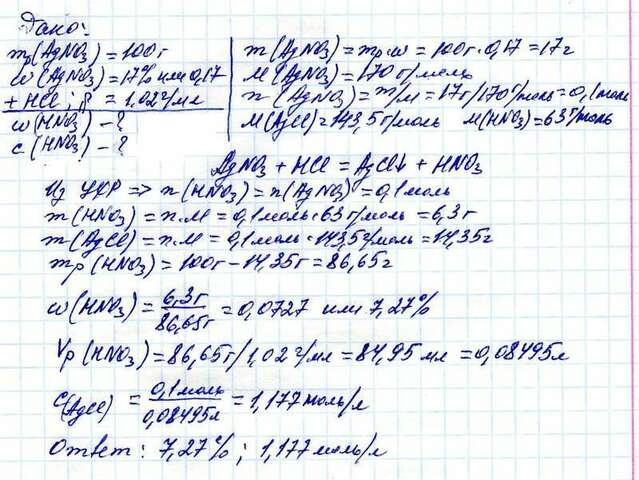 Дано:
mр(AgNO₃) = 100г
ω(AgNO₃) = 17% или 0,17
+ HCl; ρ = 1,02 г/мл
ω(HNO₃) - ?
c(HNO₃) - ?
m(AgNO₃) = mр·ω = 100г·0,17 = 17г
M(AgNO₃) = 170 г/моль
n(AgNO₃) = m/M = 17г/170г/моль = 0,1 моль
M(AgCl) = 143,5 г/моль M(HNO₃) = 63 г/моль
AgNO₃ + HCl = AgCl↓ + HNO₃
Из УХР => n(HNO₃) = n(AgNO₃) = 0,1 моль
m(HNO₃) = n·M = 0,1 моль·63 г/моль = 6,3г
m(AgCl) = n·M = 0,1 моль·143,5 г/моль = 14,35г
mр(HNO₃) = 100г - 14,35г = 86,65г
ω(HNO₃) = 6,3г/86,65г = 0,0727 или 7,27%
Vр(HNO₃) = 86,65г/1,02 г/мл = 84,95 мл = 0,08495л
C(AgCl) = 0,1 моль/0,08495л = 1,177 моль/л
Ответ: 7,27%; 1,177 моль/л